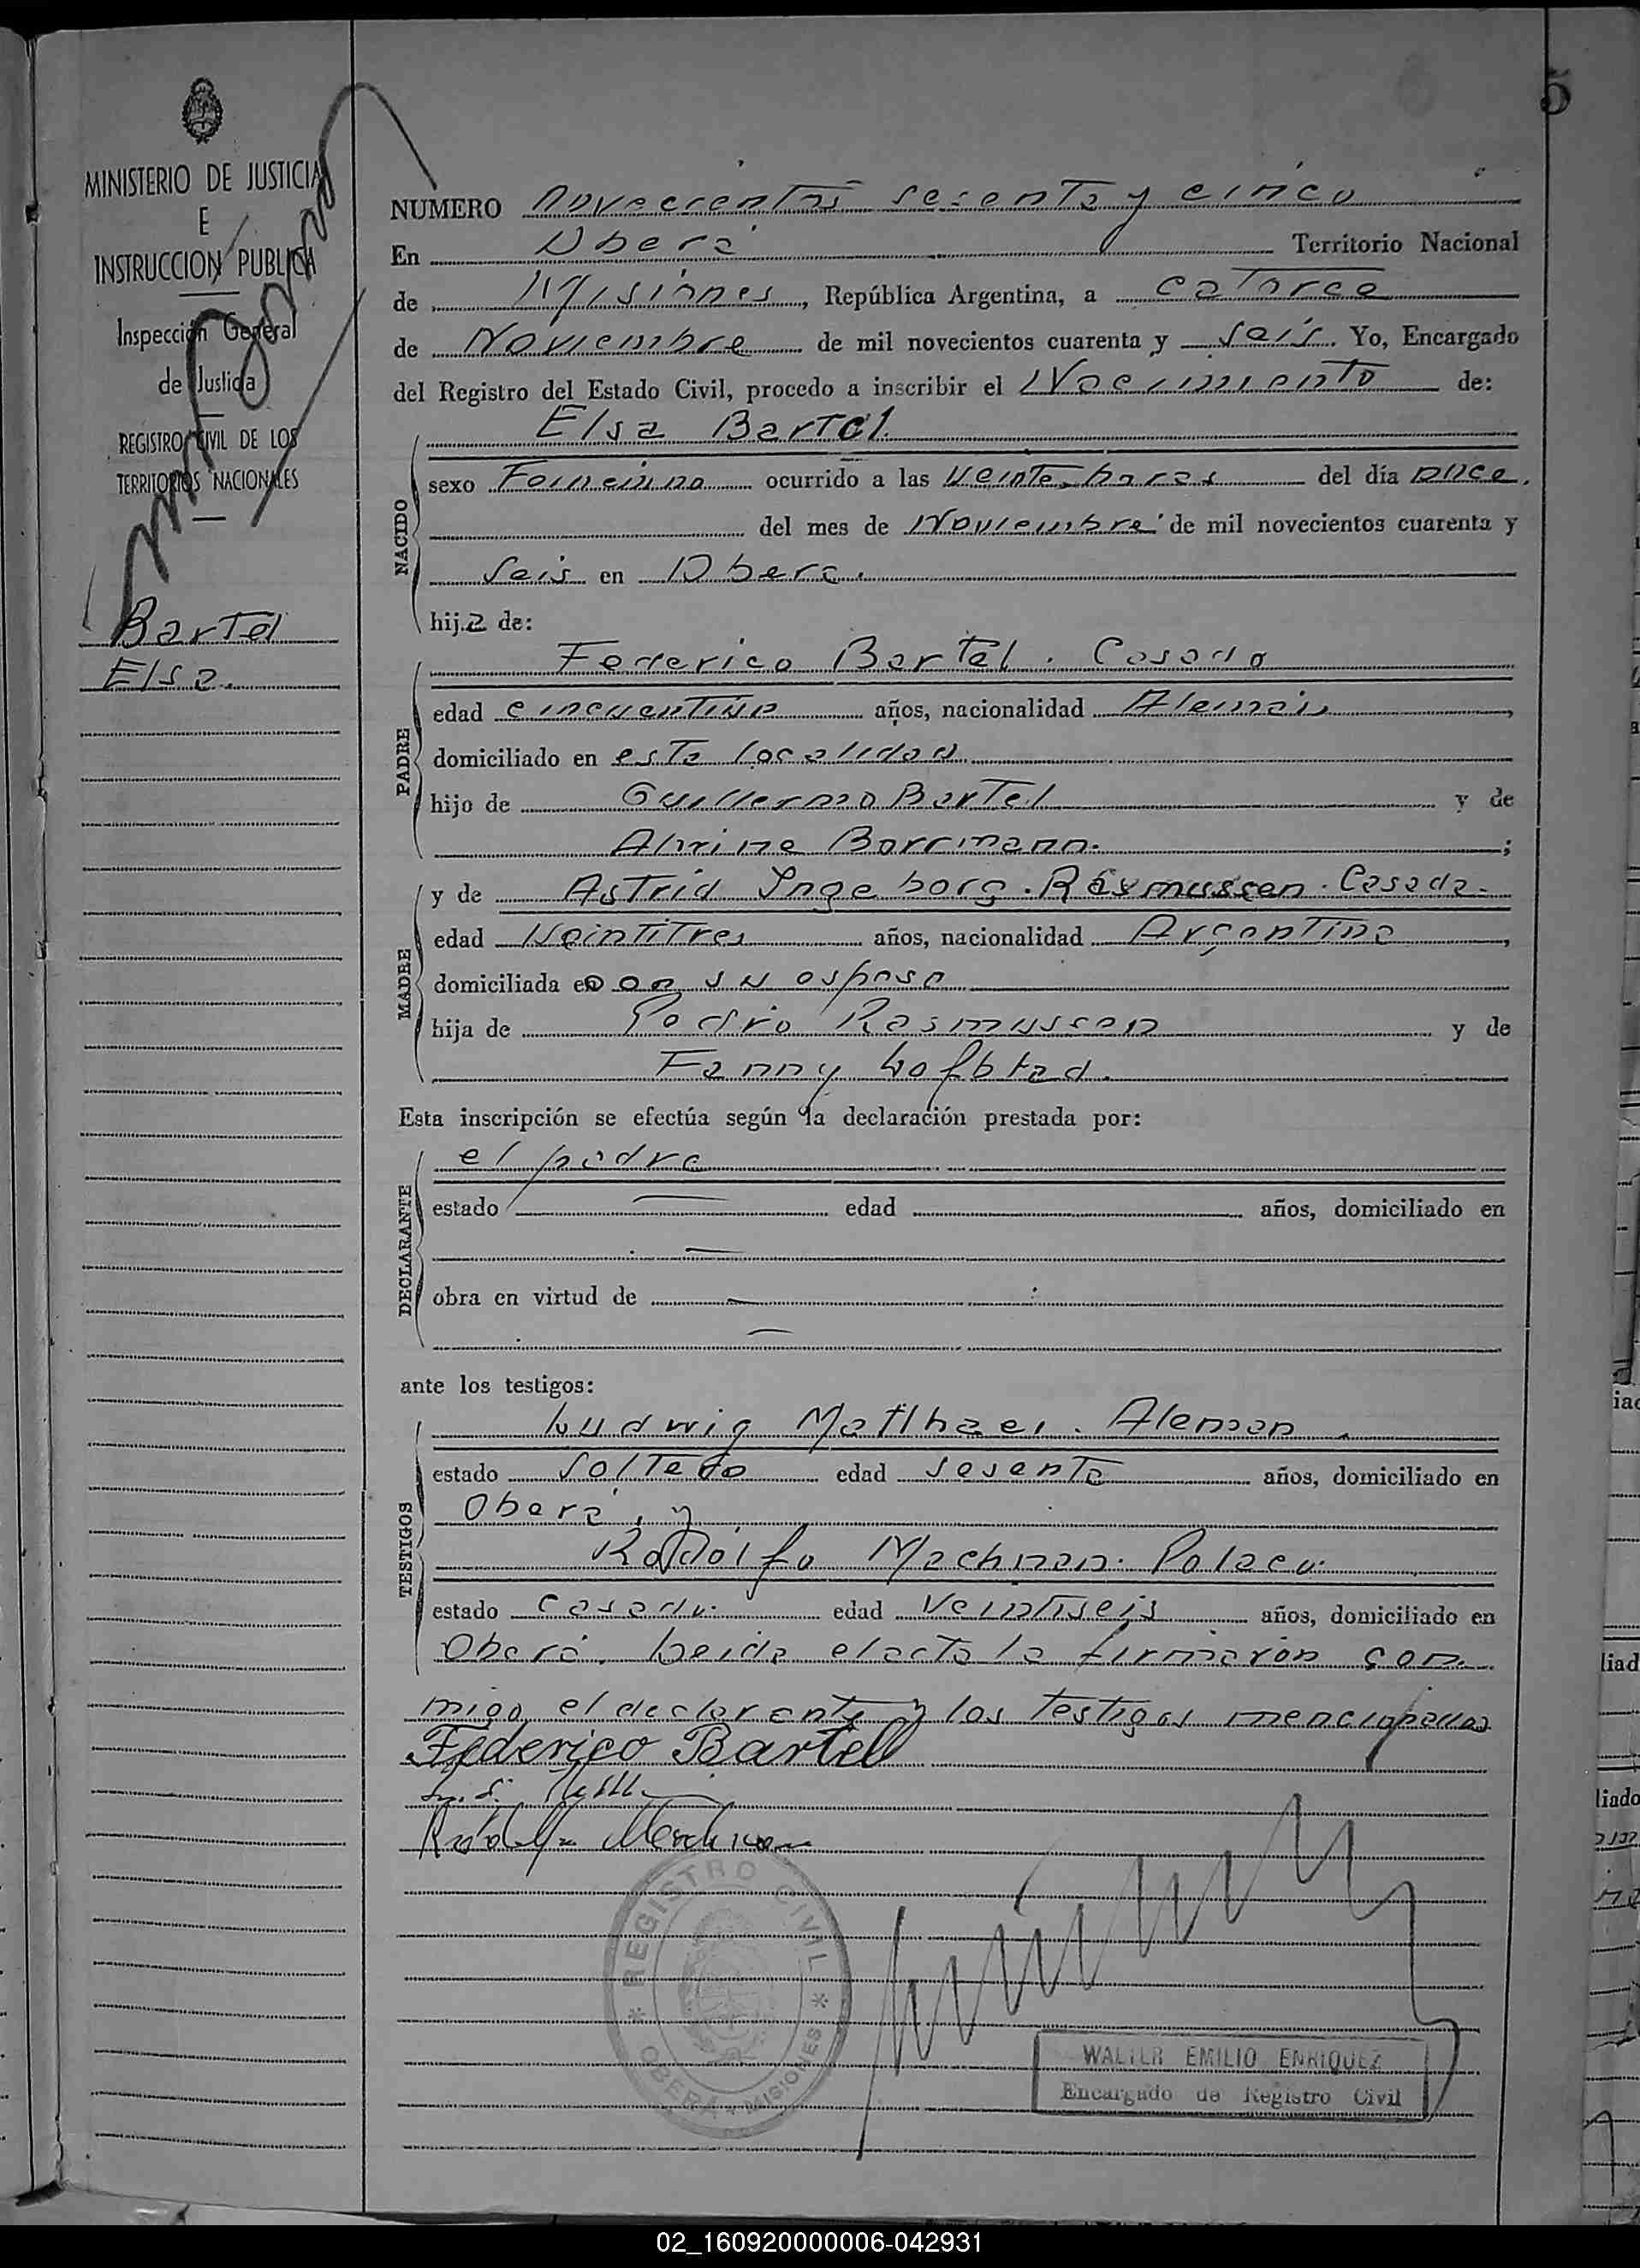 5
MINISTERIO DE JUSTICIA
E
INSTRUCCION PUBLICA
Inspección General
de Justicia
REGISTRO CIVIL DE LOS
TERRITORIOS NACIONALES
Bartel
Elsa.
NUMERO novecientos sesenta y cinco
En Oberá Territorio Nacional
de Misiones, República Argentina, a catorce
de Noviembre de mil novecientos cuarenta y seis. Yo, Encargado
del Registro del Estado Civil, procedo a inscribir el Nacimiento de:
NACIDO
Elsa Bartel.
sexo Femenino ocurrido a las veinte horas del día once,
del mes de Noviembre de mil novecientos cuarenta y
seis en Oberá.
hija de:
PADRE
Federico Bartel. Casado
edad años, nacionalidad Alemán,
domiciliado en esta localidad
hijo de Guillermo Bartel y de
Borrmann. ;
MADRE
y de Astrid Ingeborg. Rasmussen. Casada.
edad Veintitres años, nacionalidad Argentina,
domiciliada con su esposo
hija de Pedro Rasmussen y de
Fanny
Esta inscripción se efectúa según la declaración prestada por:
DECLARANTE
el padre
estado — edad años, domiciliado en
—
obra en virtud de —
—
ante los testigos:
TESTIGOS
Ludwig Matthaei. Aleman.
estado soltero edad sesenta años, domiciliado en
Oberá, y
Rodolfo Machnan. Polaco.
estado casado. edad veintiseis años, domiciliado en
Oberá. Leida el acta la firmaron con
migo el declarante y los testigos mencionados
Federico Bartel
REGISTRO CIVIL
OBERA - MISIONES
WALTER EMILIO ENRIQUEZ
Encargado de Registro Civil
02_160920000006-042931